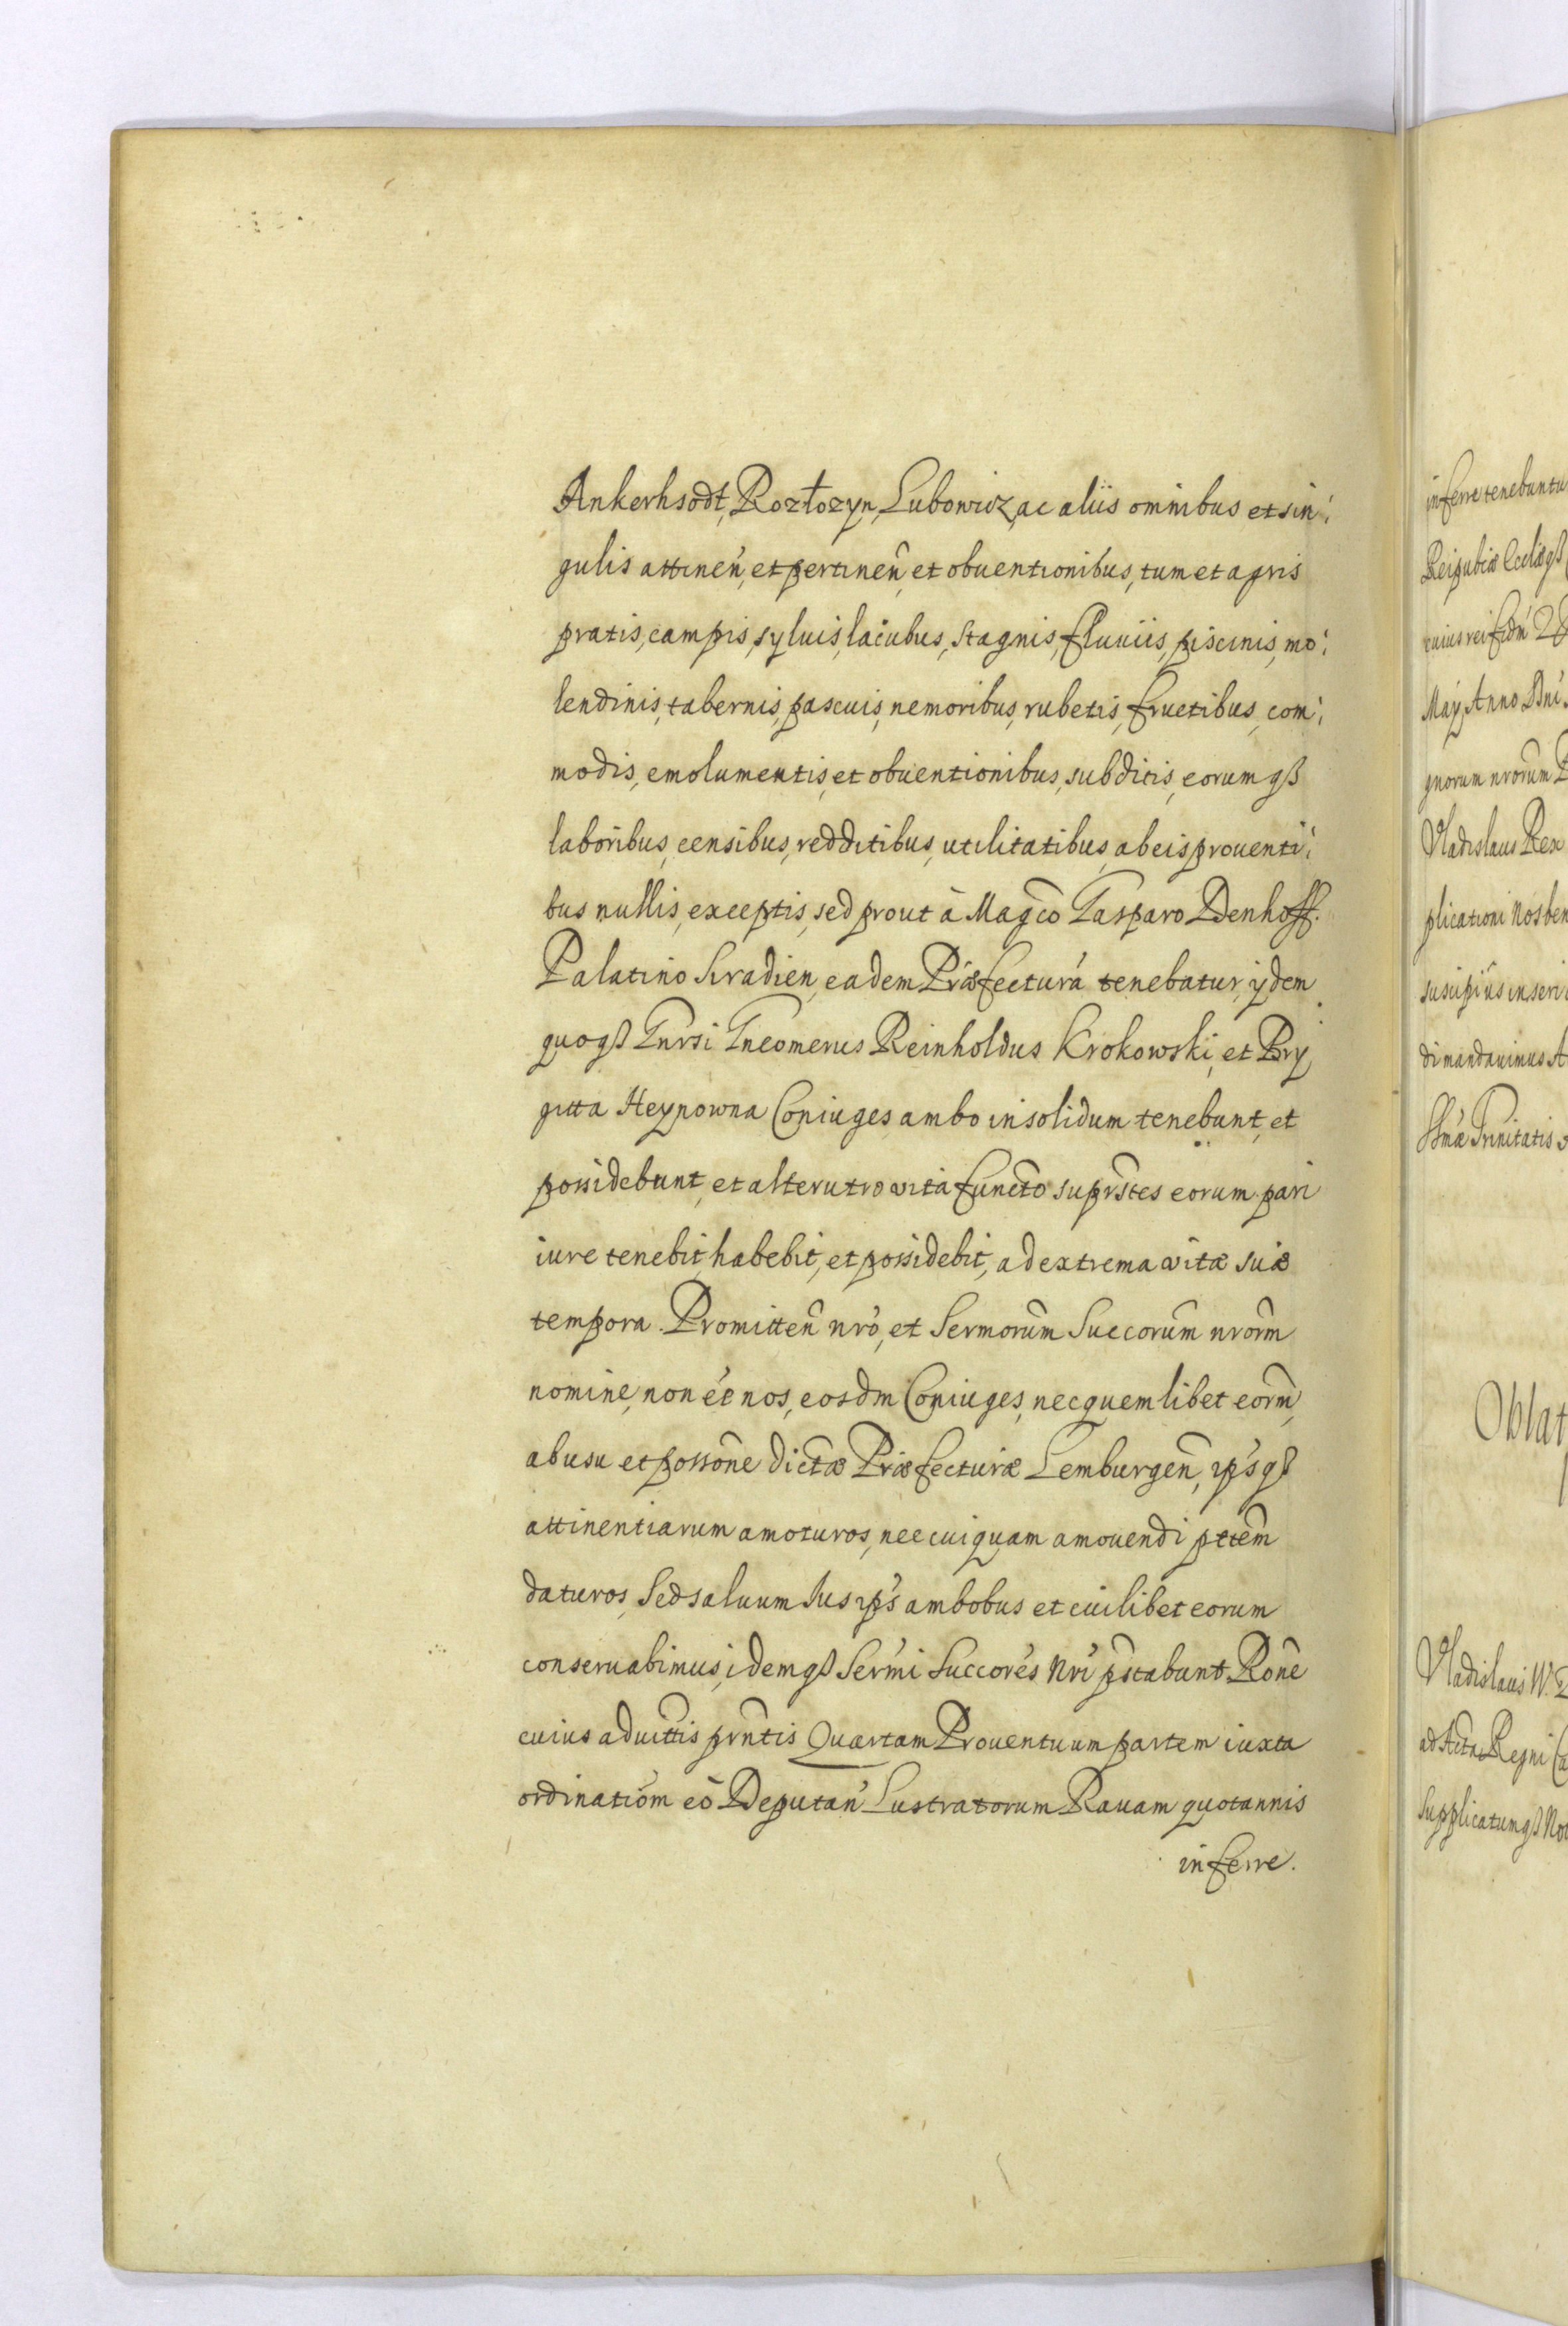 Ankerhsodt, Rozłozyn, Lubowicz, ac aliis omnibus et sin:
gulis attinen̄, et pertinen̄, et obuentionibus, tum et agris
pratis, campis, syluis, lacubus, stagnis, fluuiis, piscinis, mo:
lendinis, tabernis, pascuis, nemoribus, rubetis, fructibus, com:
modis, emolumentis, et obuentionibus, subditis, eorumqß
laboribus, censibus, redditibus, utilitatibus, ab eis prouenti:
bus nullis, exceptis, sed prout à Magco Gasparo Denhoff.
Palatino Siradien, eadem Præfectura tenebatur, ijdem
quoqß Gnrsi Gneomerus Reinholdus Krokowski, et Bry
gitta Heynowna Coniuges ambo insolidum tenebunt, et
possidebunt, et alterutro vita functo suprstes eorum pari
iure tenebit, habebit, et possidebit, ad extrema vitæ suæ
tempora. Promitten̄ nro, et Sermorum̄ Succorum̄ nrorm̄
nomine, non ee nos, eosdm Coniuges, nec quemlibet eorm̄,
ab usu et posson̄e dictæ Præfecturæ Lemburgen̄, ipsqß
attinentiarum amoturos, nec cuiquam amouendi pttem̄
daturos, Sed saluum Ius ips ambobus et cuilibet eorum
conseruabimus, idemqß Sermi Succores Nri pstabunt. Rone
cuius aduittis prntis Quartam Prouentuum partem iuxta
ordinatiom eò Deputan̄ Lustratorum Rauam quotannis
inferre.
inferre tenebuntu
Reipublcæ
cuius rei fidm
May Anno Dni
gnorum nrorum̄
Vladislaus Rex
plicationi Nos ben
suscipi
di mandauimus A
SSmæ Trinitatis
Oblat
Vladislaus W.
ad Acta Regni Ca
Supplicatumqß No